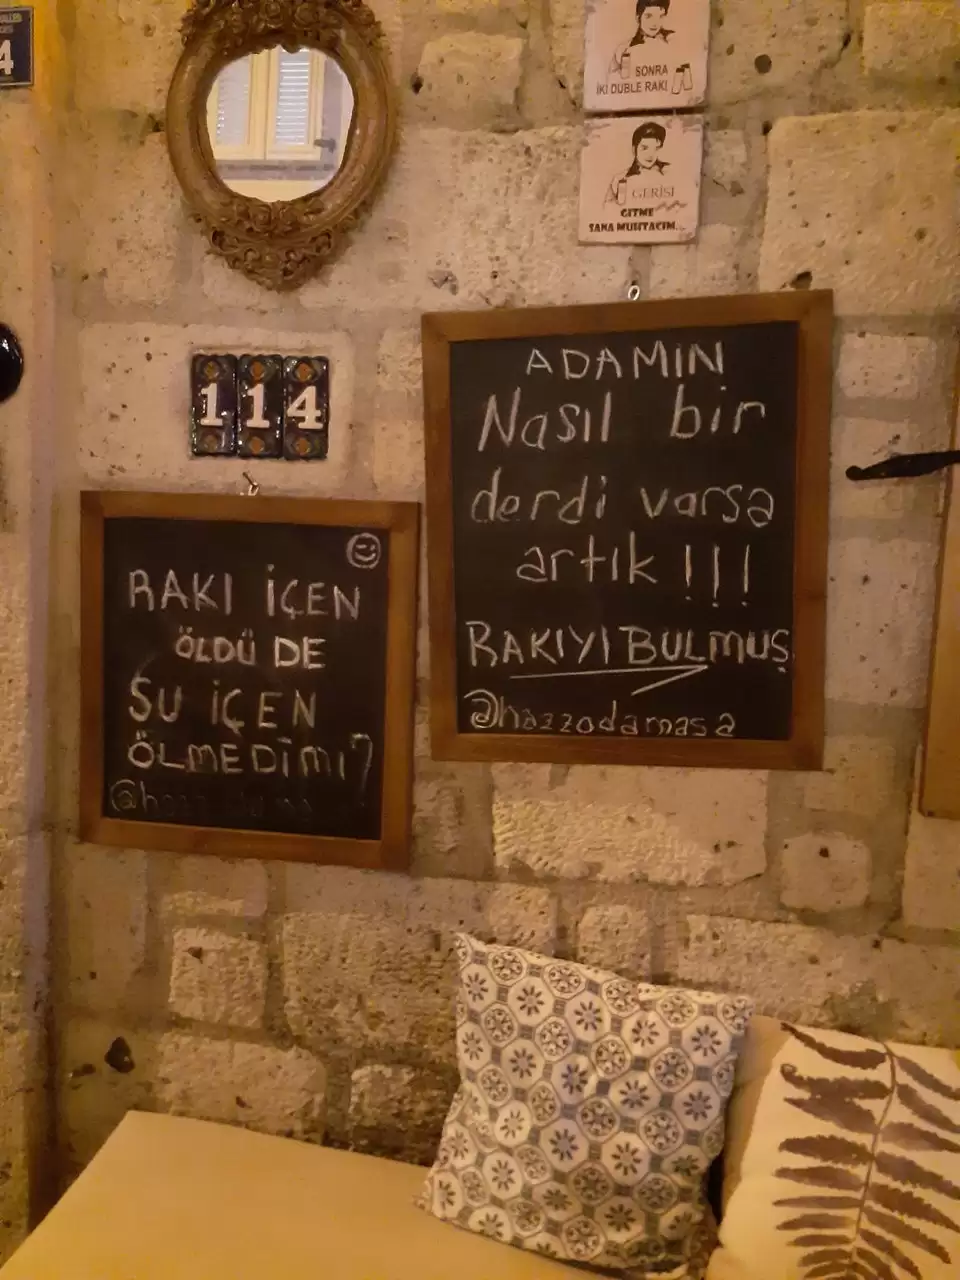 4
SONRA
İKİ DUBLE RAKI
GERİSİ
GİTME
SANA MUHTACIM...
114
ADAMIN
Nasıl bir
derdi varsa
artık !!!
RAKIYI BULMUŞ
@hazzodamasa
RAKI İÇEN
ÖLDÜ DE
SU İÇEN
ÖLMEDİMİ?